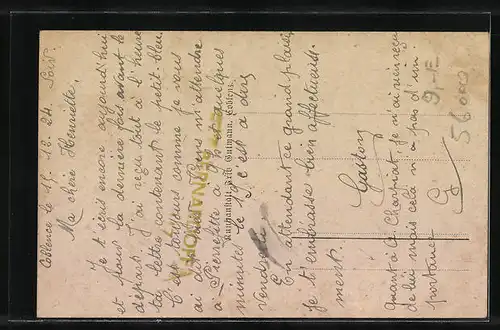 Coblence le 17. 12. 24. Soir
Ma chère Henriette,
Je t'écris encore aujourd'hui
et pour la dernière fois avant le
départ. J'ai reçu tout à l'heure
ta lettre contenant le petit bleu.
C'est toujours comme je vous
ai dit. Viens m'attendre
à Pierrefitte à 7h et quelques
minutes le 19, c'est à dire
vendredi
En attendant ce grand plaisir
Je t'embrasse bien affectueuse-
ment.
Gaston
Quant à le Charpriat, je n'ai rien reçu
de lui mais cela n'a pas d'im-
portance
G
Kunstanstalt Zeno Gutmann, Coblenz.
9,-E
56000